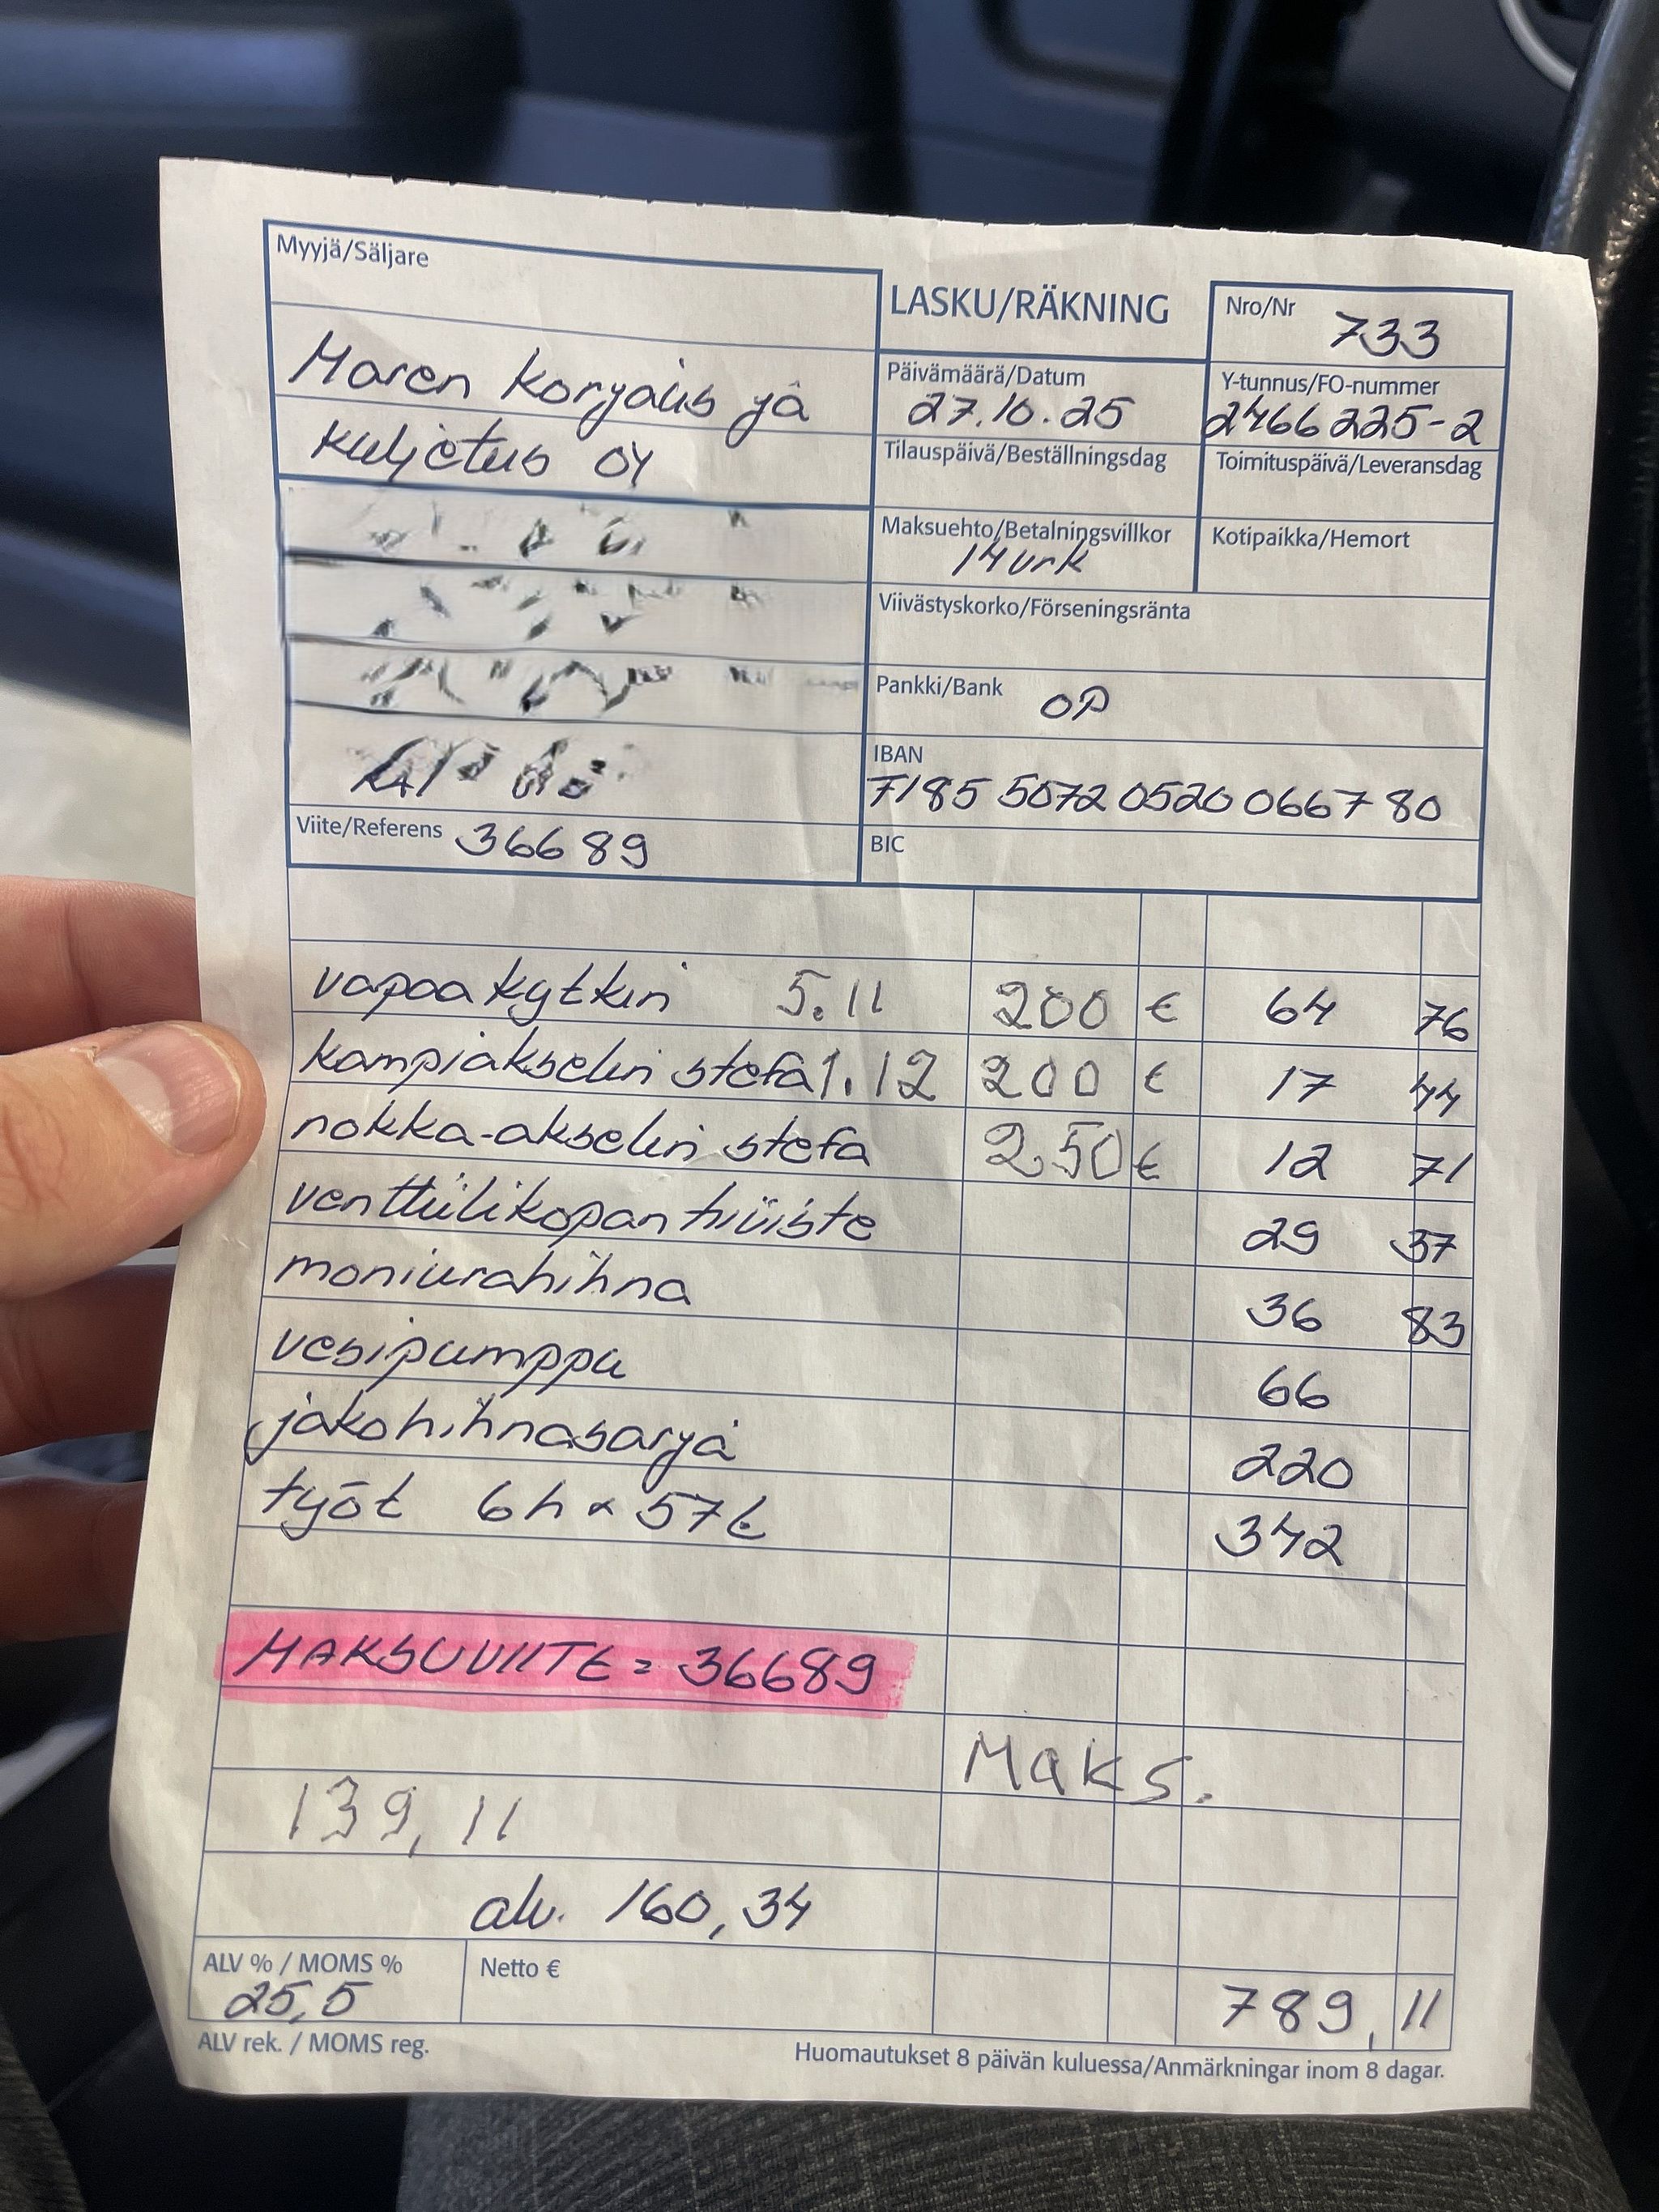 Myyjä/Säljare
LASKU/RÄKNING
Nro/Nr 733
Maren korjaus ja
kuljetus OY
Päivämäärä/Datum
27.10.25
Y-tunnus/FO-nummer
2466225-2
Tilauspäivä/Beställningsdag
Toimituspäivä/Leveransdag
Maksuehto/Betalningsvillkor
14 vrk
Kotipaikka/Hemort
Viivästyskorko/Förseningsränta
Pankki/Bank OP
IBAN
FI85 5072 0520 0667 80
Viite/Referens 36689
BIC
vapaakytkin 5.11 200 € 64 76
kampiakselin stefa 1.12 200 € 17 44
nokka-akselin stefa 250 € 12 71
venttiilikopan tiiviste 29 37
moniurahihna 36 83
vesipumppu 66
jakohihnasarja 220
työt 6h x 57€ 342
MAKSUVIITE = 36689
Maks.
139,11
alv. 160,34
ALV % / MOMS %
25,5
Netto €
789,11
ALV rek. / MOMS reg.
Huomautukset 8 päivän kuluessa/Anmärkningar inom 8 dagar.